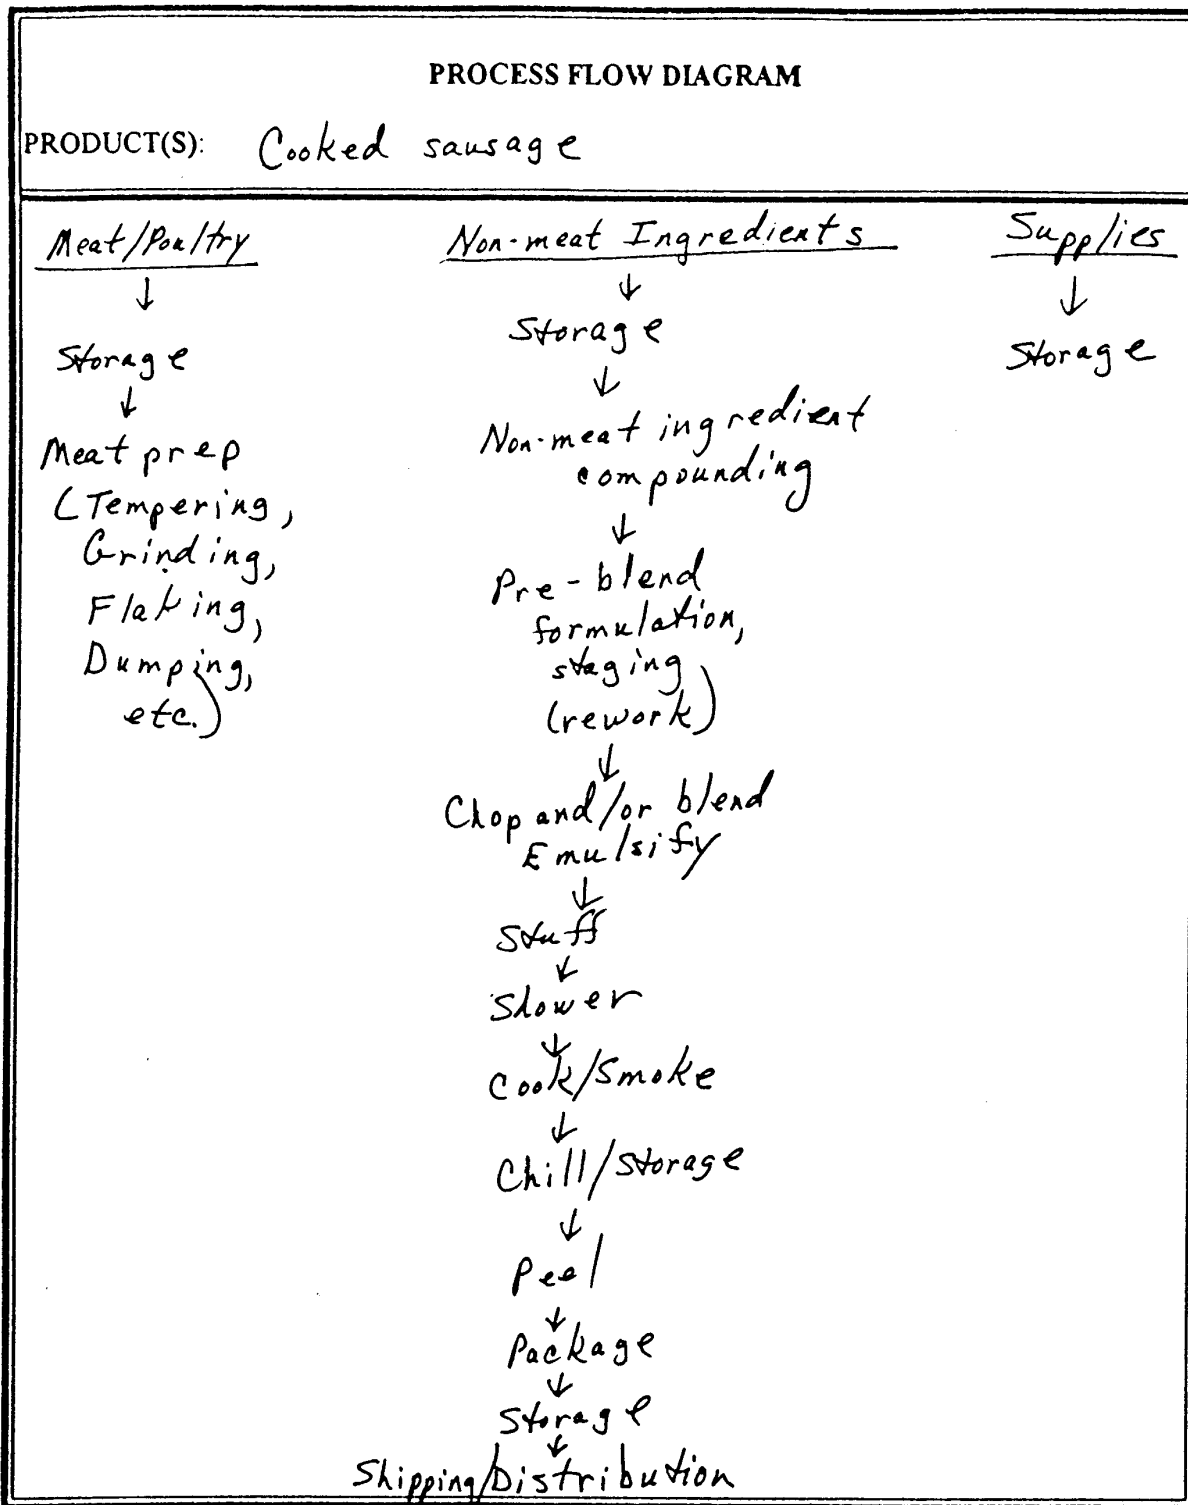 PROCESS FLOW DIAGRAM
PRODUCT(S): Cooked sausage
Meat/Poultry
↓
Storage
↓
Meat prep
(Tempering,
Grinding,
Flaking,
Dumping,
etc.)
Non-meat Ingredients
↓
Storage
↓
Non-meat ingredient
compounding
↓
Pre-blend
formulation,
staging
(rework)
↓
Chop and/or blend
Emulsify
↓
Stuff
↓
Shower
↓
Cook/Smoke
↓
Chill/Storage
↓
Peel
↓
Package
↓
Storage
↓
Shipping/Distribution
Supplies
↓
Storage